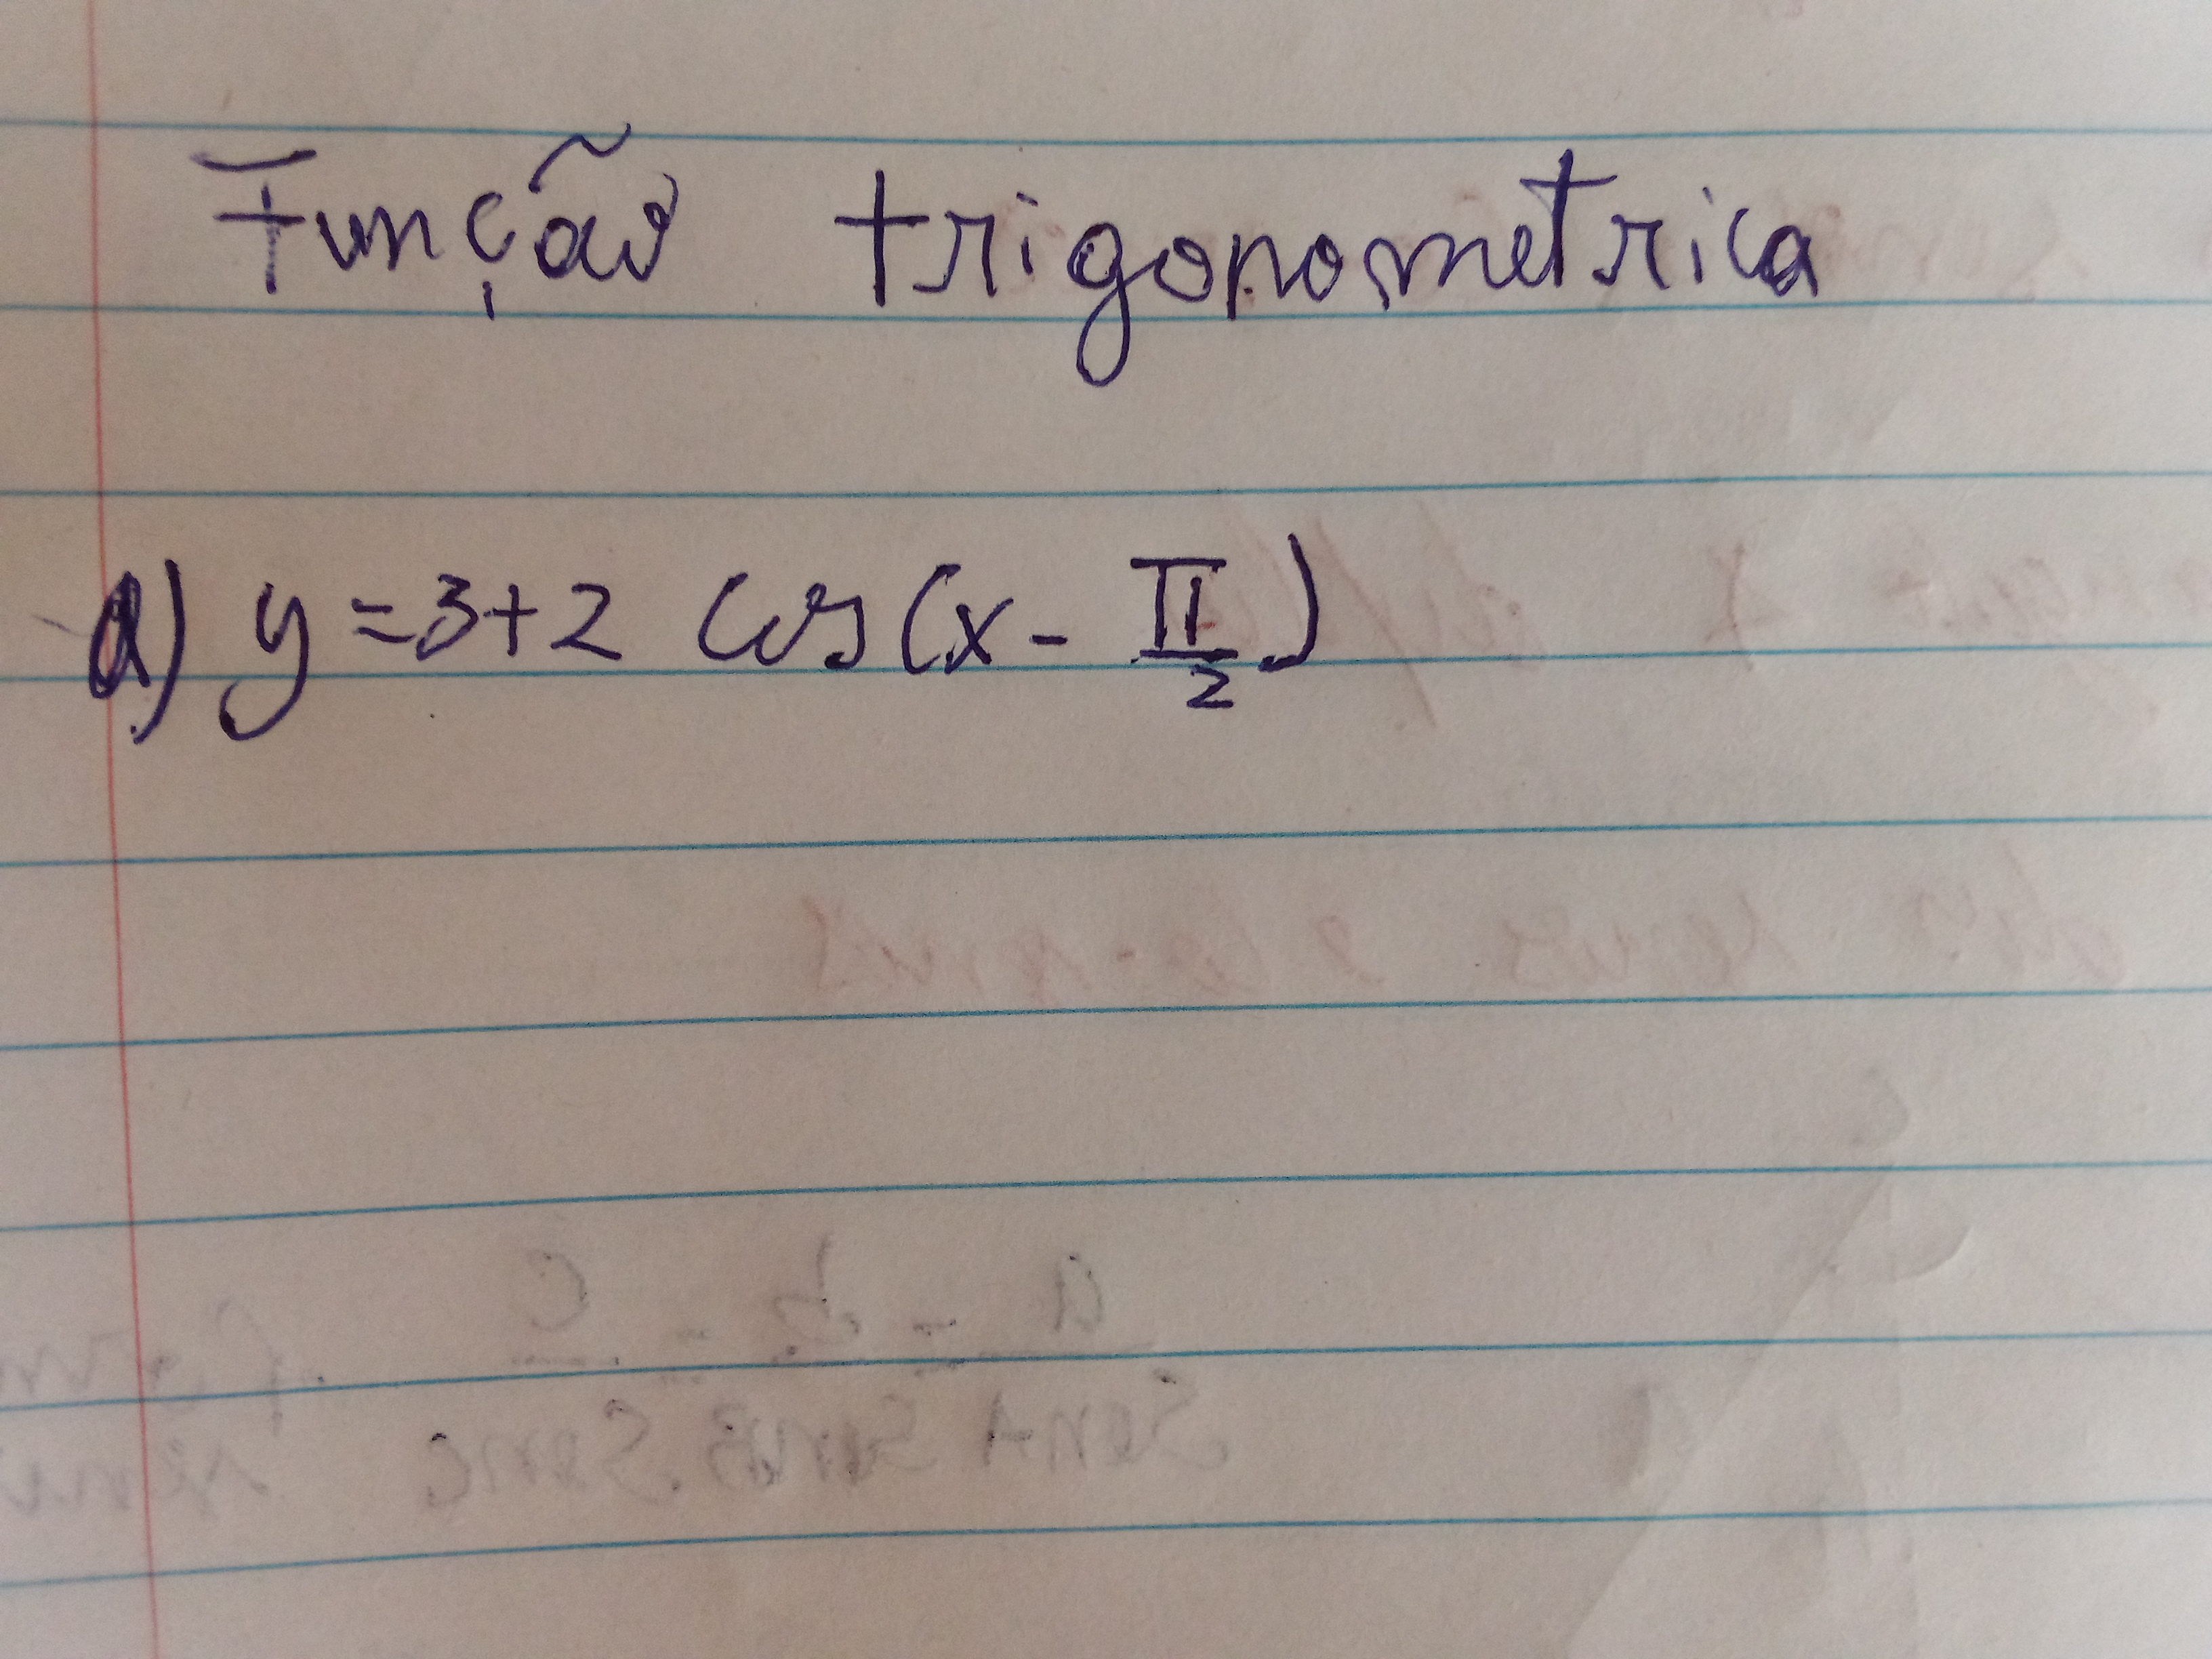 Função trigonometrica
a) y = 3 + 2 cos (x - π/2)